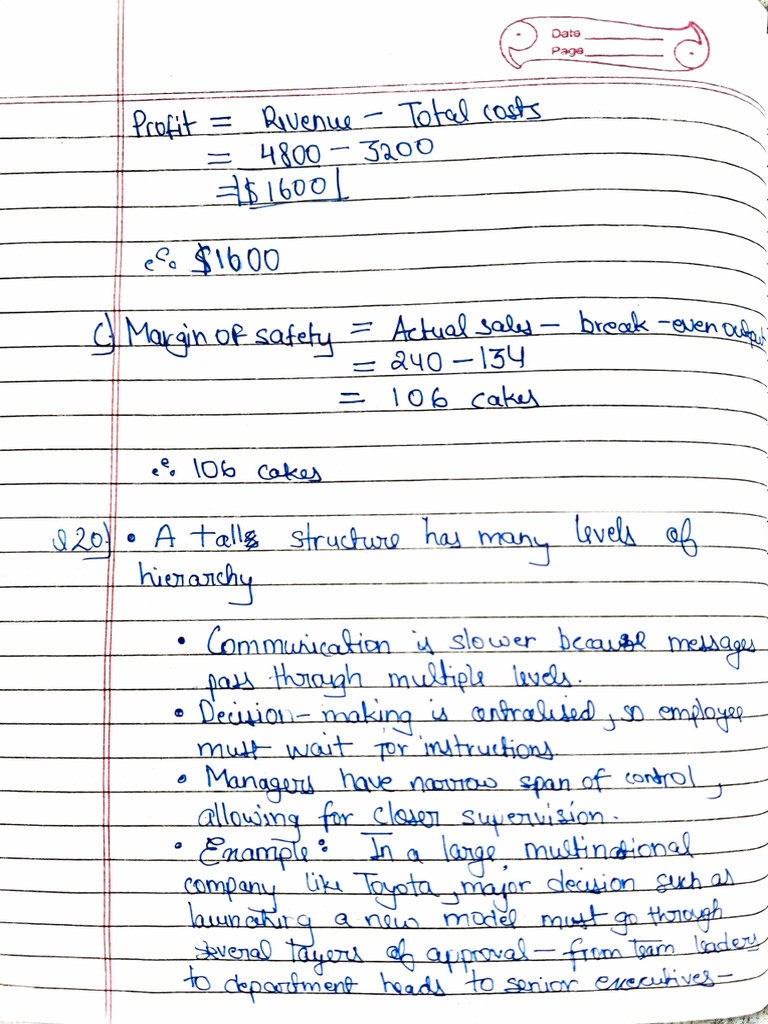 Date
Page
Profit = Revenue - Total costs
= 4800 - 3200
= $1600
∴ $1600
C) Margin of safety = Actual sales - break-even output
= 240 - 134
= 106 cakes
∴ 106 cakes
Q20) • A tall structure has many levels of
hierarchy
• Communication is slower because messages
pass through multiple levels.
• Decision-making is centralised, so employee
must wait for instructions.
• Managers have narrow span of control,
allowing for closer supervision.
• Example: In a large multinational
company like Toyota, major decision such as
launching a new model must go through
several layers of approval - from team leaders
to department heads to senior executives-